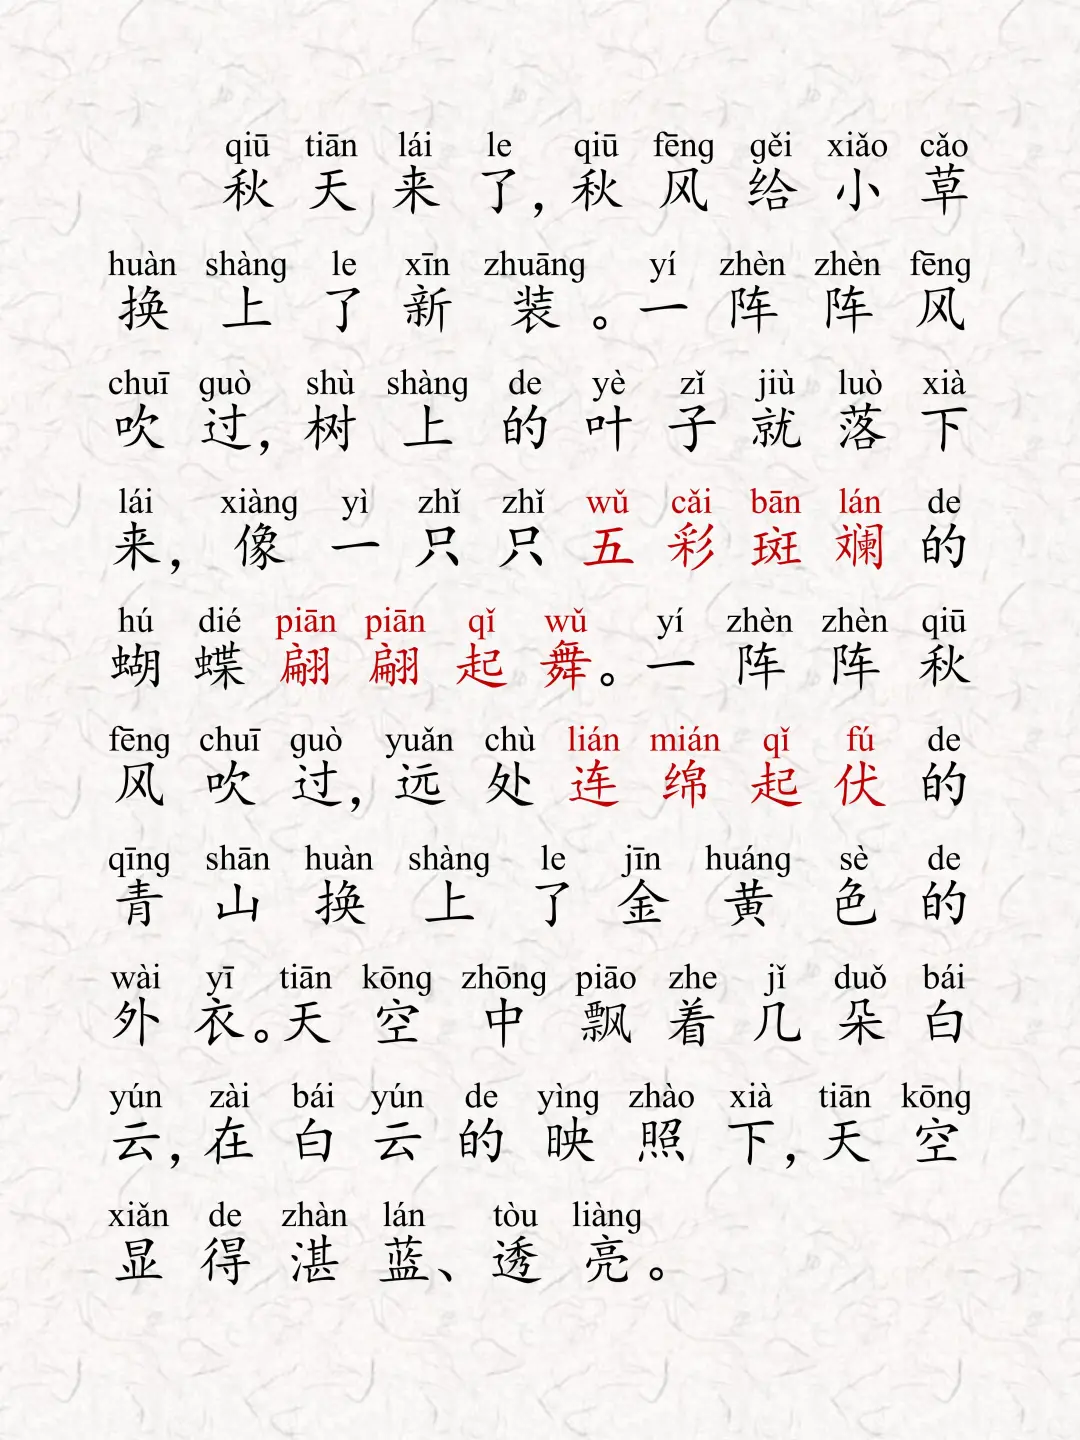 qiū tiān lái le qiū fēng gěi xiǎo cǎo
秋天来了，秋风给小草
huàn shàng le xīn zhuāng yí zhèn zhèn fēng
换上了新装。一阵阵风
chuī guò shù shàng de yè zǐ jiù luò xià
吹过，树上的叶子就落下
lái xiàng yì zhǐ zhǐ wǔ cǎi bān lán de
来，像一只只五彩斑斓的
hú dié piān piān qǐ wǔ yí zhèn zhèn qiū
蝴蝶翩翩起舞。一阵阵秋
fēng chuī guò yuǎn chù lián mián qǐ fú de
风吹过，远处连绵起伏的
qīng shān huàn shàng le jīn huáng sè de
青山换上了金黄色的
wài yī tiān kōng zhōng piāo zhe jǐ duǒ bái
外衣。天空中飘着几朵白
yún zài bái yún de yìng zhào xià tiān kōng
云，在白云的映照下，天空
xiǎn de zhàn lán tòu liàng
显得湛蓝、透亮。